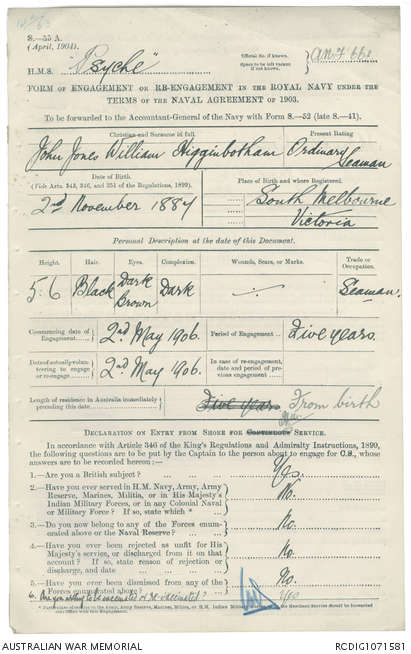 S.—55 A.
(April, 1904).
Official No. if known.
Space to be left vacant if not known.
H.M.S. "Psyche"
FORM OF ENGAGEMENT OR RE-ENGAGEMENT IN THE ROYAL NAVY UNDER THE
TERMS OF THE NAVAL AGREEMENT OF 1903.
To be forwarded to the Accountant-General of the Navy with Form S.—52 (late S.—41).
Christian and Surname in full. Present Rating
John Jones William Higginbotham Ordinary Seaman
Date of Birth
(Vide Arts. 343, 346, and 351 of the Regulations, 1899).
Place of Birth and where Registered.
2nd November 1887 South Melbourne
Victoria
Personal Description at the date of this Document.
Height. Hair. Eyes. Complexion. Wounds, Scars, or Marks. Trade or Occupation.
5.6 Black Dark Brown Dark Seaman.
Commencing date of Engagement 2nd May 1906. Period of Engagement Five years.
Date of actually volunteering to engage or re-engage 2nd May 1906. In case of re-engagement, date and period of previous engagement
Length of residence in Australia immediately preceding this date Five years From birth
DECLARATION ON ENTRY FROM SHORE FOR CONTINUOUS SERVICE.
In accordance with Article 346 of the King's Regulations and Admiralty Instructions, 1899,
the following questions are to be put by the Captain to the person about to engage for C.S., whose
answers are to be recorded herein:—
1.—Are you a British subject? Yes.
2.—Have you ever served in H.M. Navy, Army, Army
Reserve, Marines, Militia, or in His Majesty's
Indian Military Forces, or in any Colonial Naval
or Military Force? If so, state which * No.
3.—Do you now belong to any of the Forces enumerated
above or the Naval Reserve? No.
4.—Have you ever been rejected as unfit for His
Majesty's service, or discharged from it on that
account? If so, state reason of rejection or
discharge, and date No.
5.—Have you ever been dismissed from any of the
Forces enumerated above? No.
6. Are you willing to be vaccinated or re-vaccinated? Yes
AUSTRALIAN WAR MEMORIAL
RCDIG1071581